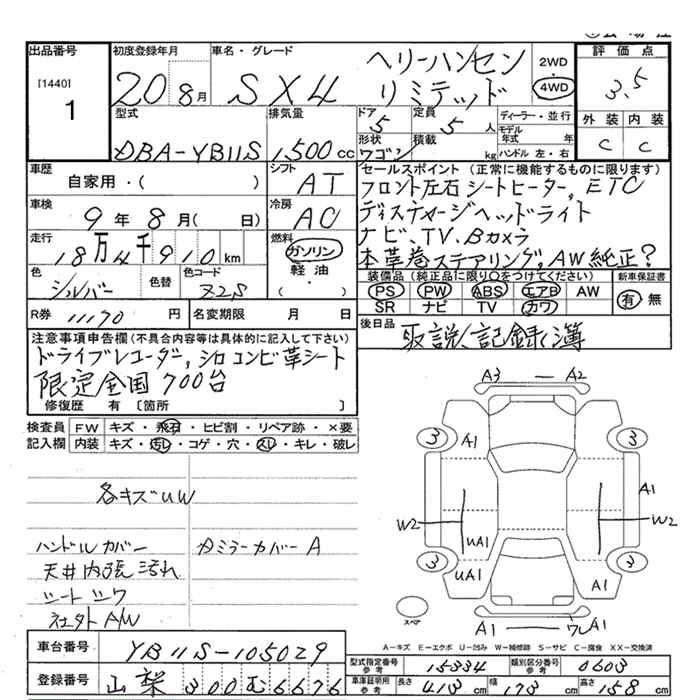 出品番号
[1440]
1
初度登録年月
20 8月
車名・グレード
SX4
ヘリーハンセン
リミテッド
2WD
4WD
評価点
3.5
外装 内装
C C
型式
DBA-YB11S
排気量
1,500 cc
ドア 5
定員 5人
ディーラー・並行
モデル年式 年
形状 ワゴン
積載 kg
ハンドル 左・右
車歴
自家用・( )
シフト
AT
車検
9年8月( 日)
冷房
AC
走行
18万4千910km
燃料
ガソリン
軽油
・( )
色 シルバー
色替
色コード Z2S
R券 11170円
名変期限 月 日
セールスポイント(正常に機能するものに限ります)
フロント左右シートヒーター, ETC
ディスチャージヘッドライト
ナビ、TV、Bカメラ
本革巻ステアリング, AW純正?
装備品(純正品に限り○をつけてください)
PS PW ABS エアB AW
SR ナビ TV カワ
新車保証書
有 無
後日品
取説、記録簿
注意事項申告欄(不具合内容等は具体的に記入して下さい)
ドライブレコーダー, シロコンビ革シート
限定全国700台
修復歴 有 [箇所 ]
検査員記入欄
FW キズ・飛石・ヒビ割・リペア跡・×要
内装 キズ・汚れ・コゲ・穴・スレ・キレ・破レ
各キズUW
ハンドルカバー
天井内張汚れ
シートシワ
社外AW
カミラーカバーA
A3 — A2
3 A1 3
A1
W2 W2
UA1
3 UA1 A1 3
A1
A1
スペア
A=キズ E=エクボ U=凹み W=補修跡 S=サビ C=腐食 XX=交換済
車台番号 YB11S-105029
登録番号 山梨 300 む 6676
型式指定番号 参考 15334
類別区分番号 参考 0603
車庫証明用 参考 長さ 413cm 幅 173cm 高さ 158cm